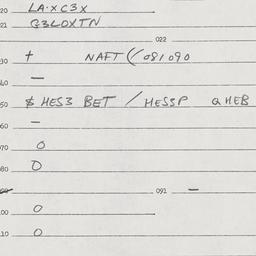 20 LA·XC3X
21 G3LOXTN
022
30 + NAFT (/ 081090
40 —
50 $ HES3 BET / HESSP Q HEB
60 —
70 0
80 0
091 —
00 0
10 0